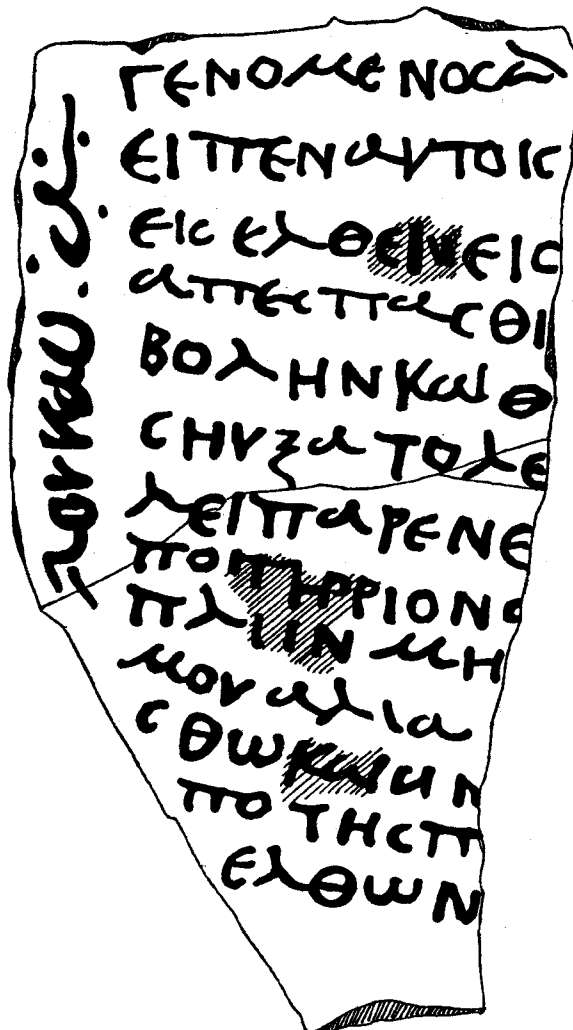 ΓΕΝΟΜΕΝΟCΔ
ΕΙΠΕΝΑΥΤΟΙC
ΕΙCΕΛΘΕΙΝΕΙC
ΑΠΕCΠΑCΘΙ
ΒΟΛΗΝΚΑΙΘ
CΗΥΞΑΤΟΛΕ
ΛΕΙΠΑΡΕΝΕ
ΠΟΤΗΡΡΙΟΝ
ΠΛΙΙΝΜΗ
ΜΟΥΑΛΙΑ
CΘΩΚΑΙΑΝ
ΠΟΤΗCΠ
ΕΛΘΩΝ